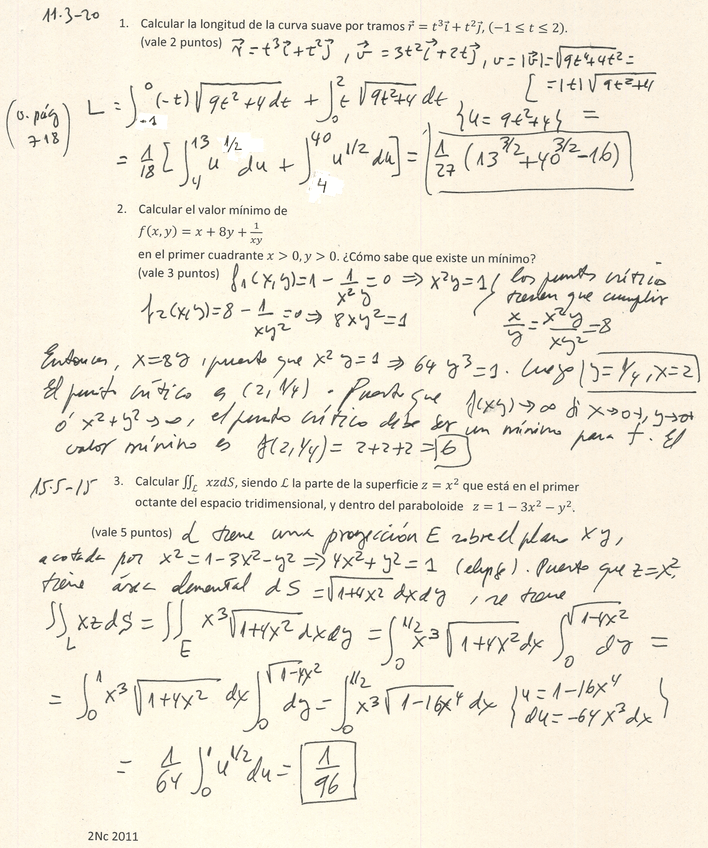 11.3-20
1. Calcular la longitud de la curva suave por tramos r⃗ = t³i⃗ + t²j⃗, (−1 ≤ t ≤ 2).
(vale 2 puntos) r⃗ = t³i⃗ + t²j⃗, v⃗ = 3t²i⃗ + 2tj⃗, v = |v⃗| = √(9t⁴+4t²) =
= |t|√(9t²+4)
(v. pág 718) L = ∫₋₁⁰ (-t)√(9t²+4) dt + ∫₀² t√(9t²+4) dt {u = 9t²+4} =
= 1/18 [∫₄¹³ u^(1/2) du + ∫₄⁴⁰ u^(1/2) du] = 1/27 (13^(3/2) + 40^(3/2) - 16)
2. Calcular el valor mínimo de
f(x, y) = x + 8y + 1/(xy)
en el primer cuadrante x > 0, y > 0. ¿Cómo sabe que existe un mínimo?
(vale 3 puntos) f₁(x,y) = 1 - 1/(x²y) = 0 ⇒ x²y = 1
f₂(x,y) = 8 - 1/(xy²) = 0 ⇒ 8xy² = 1
los puntos críticos
tienen que cumplir
x/y = x²y/(xy²) = 8
Entonces, x = 8y, puesto que x²y = 1 ⇒ 64y³ = 1. Luego y = 1/4, x = 2
El punto crítico es (2, 1/4). Puesto que f(xy) → ∞ si x→0+, y→0+
ó x²+y² → ∞, el punto crítico debe ser un mínimo para f. El
valor mínimo es f(2, 1/4) = 2+2+2 = 6
15.5-15
3. Calcular ∬_ℒ xzdS, siendo ℒ la parte de la superficie z = x² que está en el primer
octante del espacio tridimensional, y dentro del paraboloide z = 1 − 3x² − y².
(vale 5 puntos) L tiene una proyección E sobre el plano xy,
acotada por x² = 1-3x²-y² ⇒ 4x²+y² = 1 (elipse). Puesto que z = x²,
tiene área elemental dS = √(1+4x²) dxdy, se tiene
∬_L xz dS = ∬_E x³√(1+4x²) dxdy = ∫₀^(1/2) x³√(1+4x²) dx ∫₀^√(1-4x²) dy =
= ∫₀¹ x³√(1+4x²) dx ∫₀^√(1-4x²) dy = ∫₀^(1/2) x³√(1-16x⁴) dx {u = 1-16x⁴
du = -64x³dx}
= 1/64 ∫₀¹ u^(1/2) du = 1/96
2Nc 2011